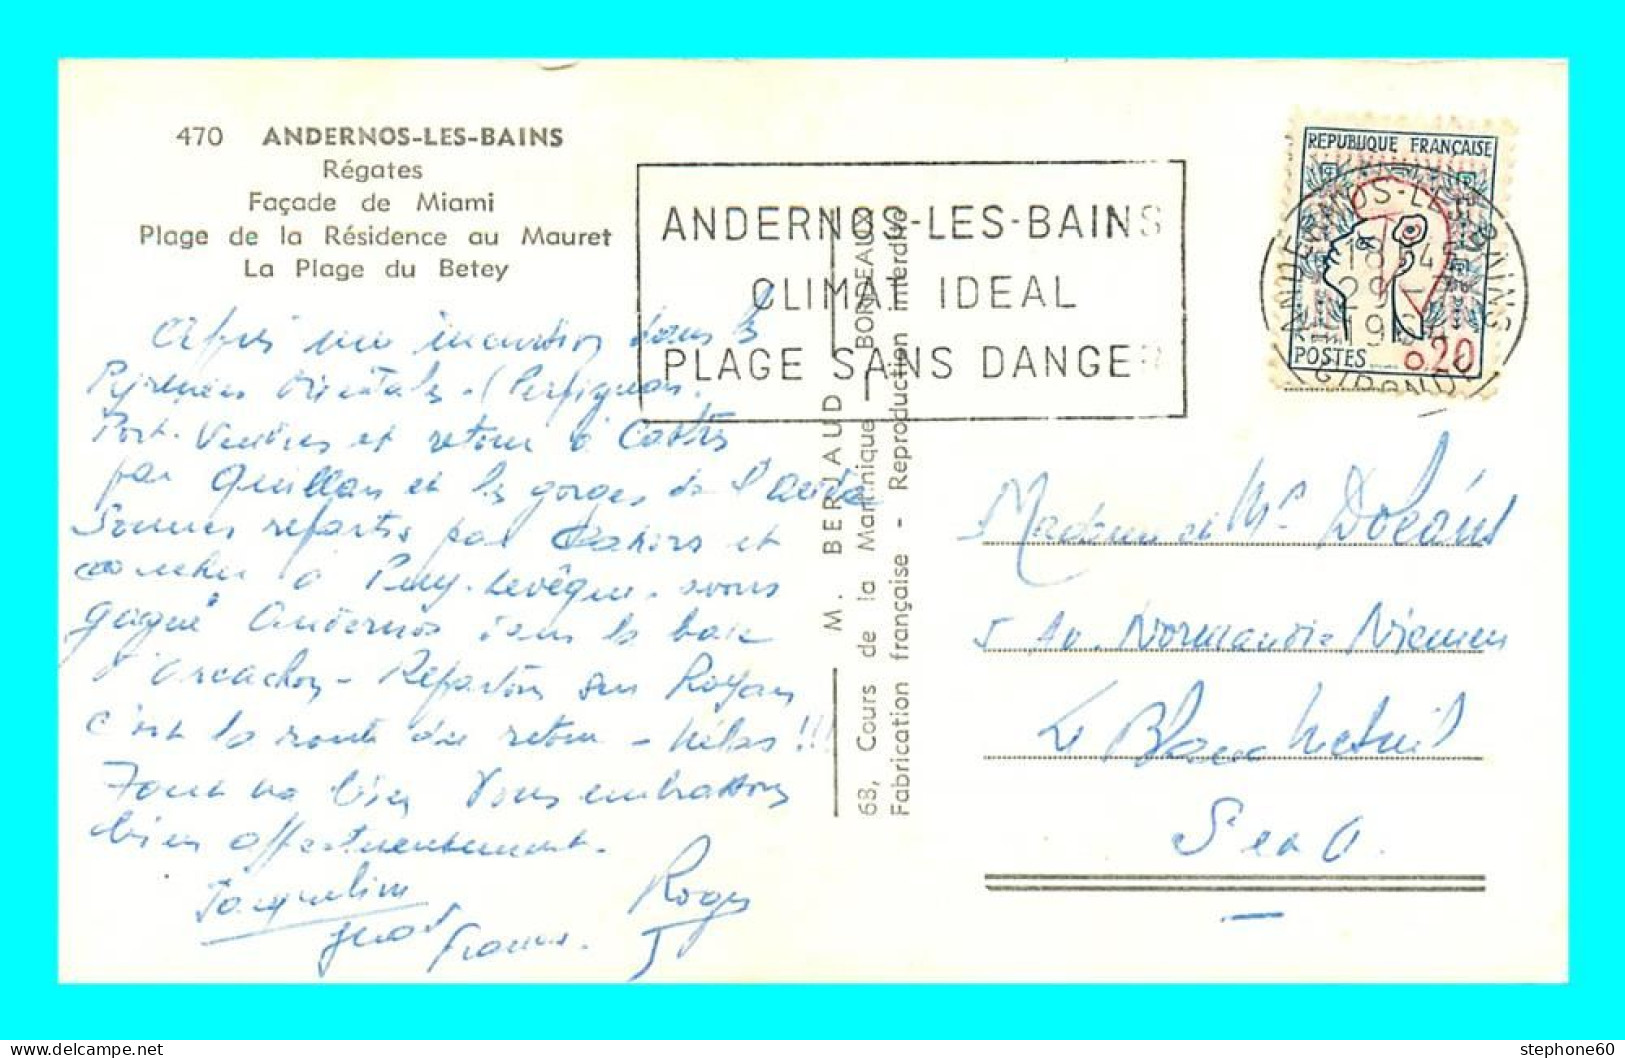 470 ANDERNOS-LES-BAINS
Régates
Façade de Miami
Plage de la Résidence au Mauret
La Plage du Betey
ANDERNOS-LES-BAINS
CLIMAT IDEAL
PLAGE SANS DANGER
REPUBLIQUE FRANÇAISE
POSTES 0,20
ANDERNOS-LES-BAINS
18 H 45
GIRONDE
Après une excursion dans les
Pyrénées Orientales - (Perpignan.
Port-Vendres et retour à Castres
par Quillan et les gorges de l'Aude
Sommes repartis par Cahors et
coucher à Puy-Levêque. avons
gagné Andernos dans le baie
d'Arcachon - Repartons sur Royan
c'est la route du retour - hélas !!!
Tout va bien Vous embrassons
bien affectueusement.
Jacqueline
Roger
M. BERJAUD
68, Cours de la Martinique — BORDEAUX
Fabrication française - Reproduction interdite
Madame et Mr
5 Av. Normandie Niemen
Le Blanc Mesnil
S et O.
stephone60